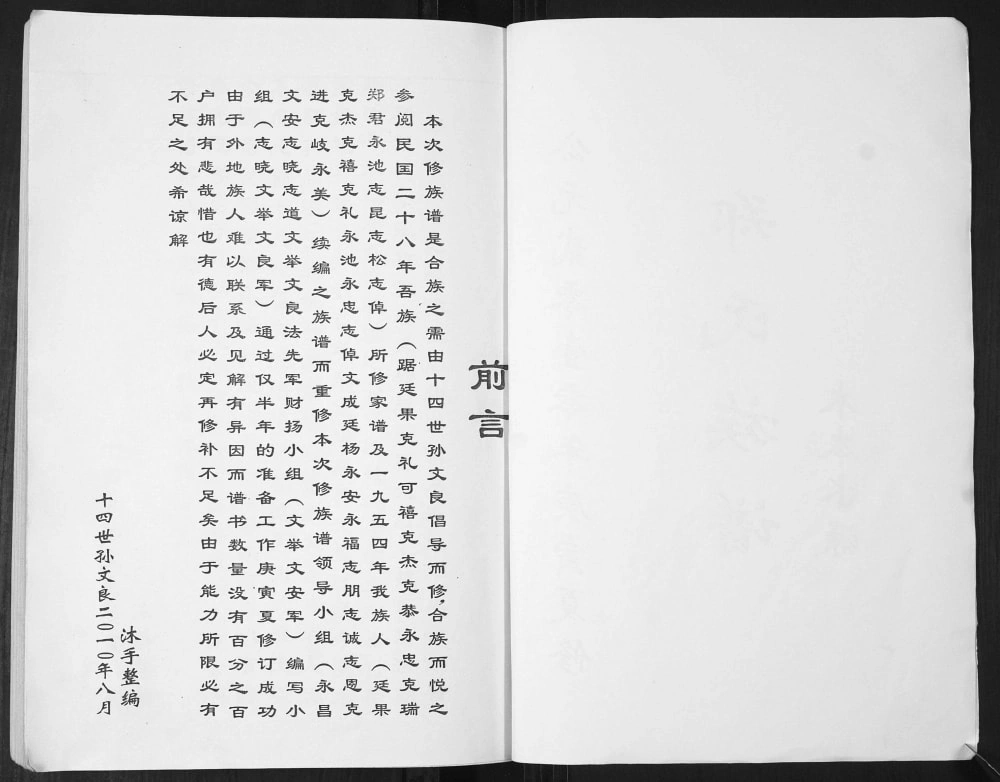 前言
本次修族谱是合族之需由十四世孙文良倡导而修，合族而悦之
参阅民国二十八年吾族（踞廷果克礼可禧克杰克恭永忠克瑞
郑君永池志昆志松志倬）所修家谱及一九五四年我族人（廷果
克杰克禧克礼永池永忠志倬文成廷杨永安永福志朋志诚志恩克
进克岐永美）续编之族谱而重修本次修族谱领导小组（永昌
文安志晓志道文举文良法先军财扬小组（文举文安军）编写小
组（志晓文举文良军）通过仅半年的准备工作庚寅夏修订成功
由于外地族人难以联系及见解有异因而谱书数量没有百分之百
户拥有悲哉惜也有德后人必定再修补不足矣由于能力所限必有
不足之处希谅解
沐手整编
十四世孙文良二〇一〇年八月